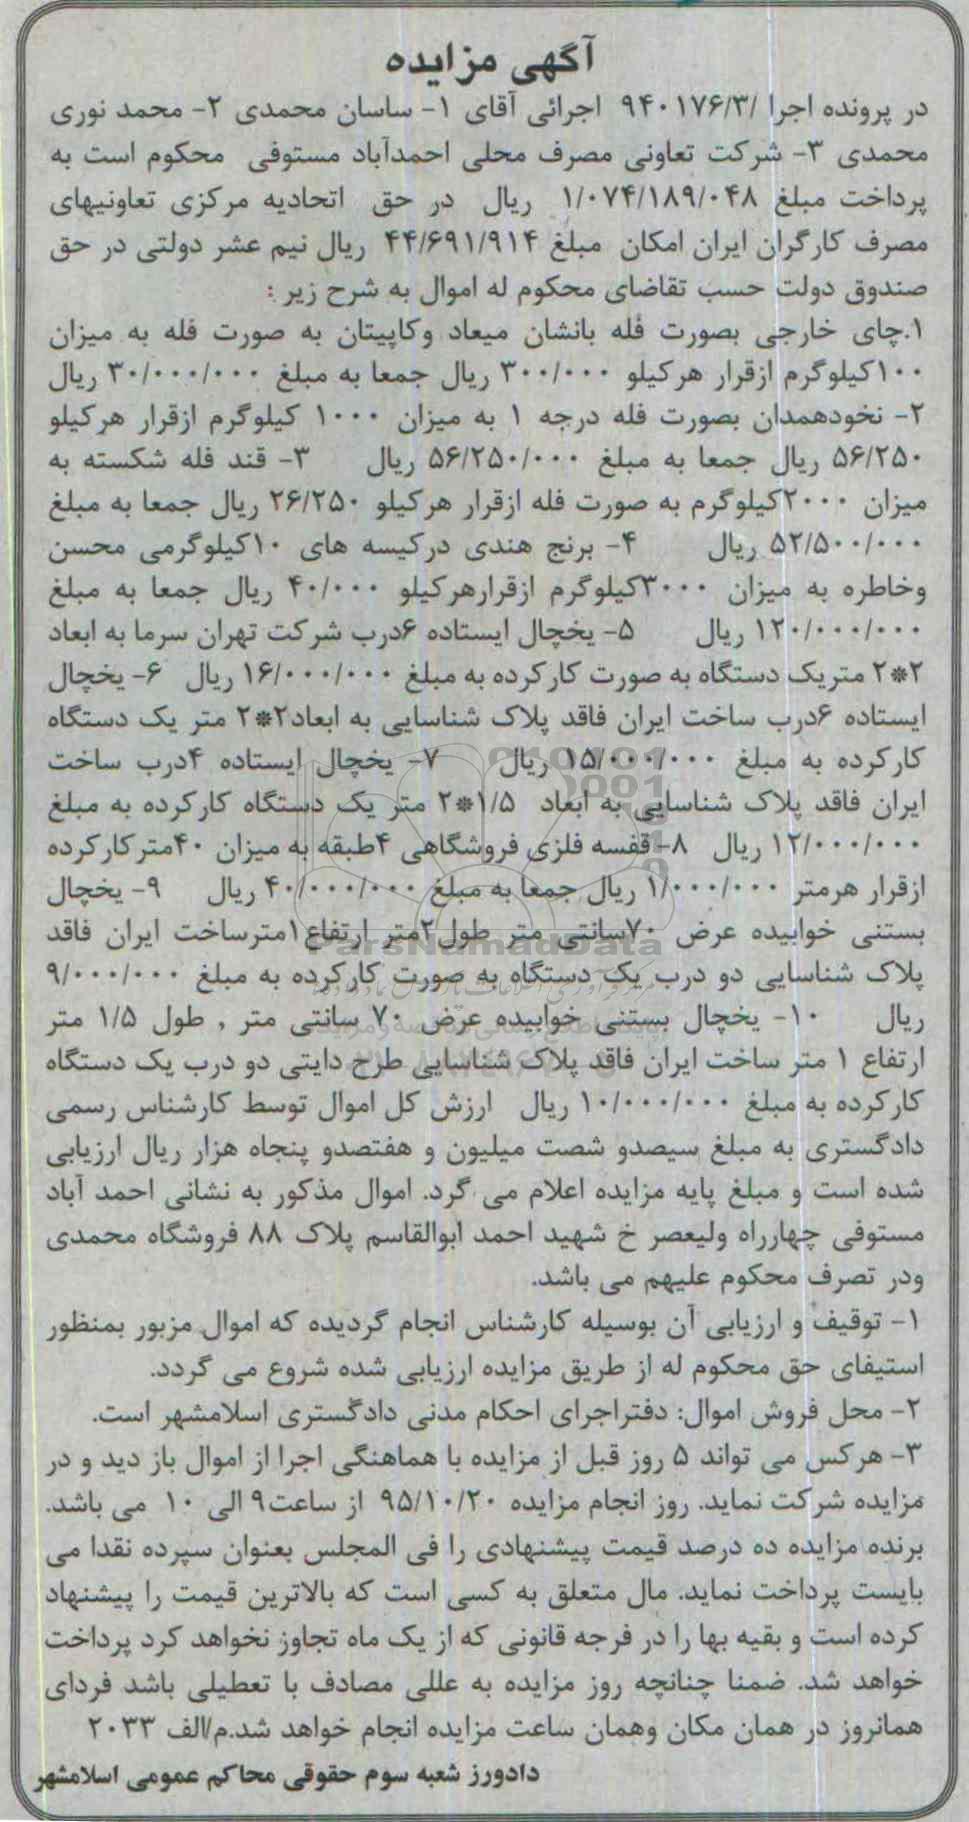 آگهی مزایده
در پرونده اجرا /۹۴۰۱۷۶/۳ اجرائی آقای ۱- ساسان محمدی ۲- محمد نوری
محمدی ۳- شرکت تعاونی مصرف محلی احمدآباد مستوفی محکوم است به
پرداخت مبلغ ۱/۰۷۴/۱۸۹/۰۴۸ ریال در حق اتحادیه مرکزی تعاونیهای
مصرف کارگران ایران امکان مبلغ ۴۴/۶۹۱/۹۱۴ ریال نیم عشر دولتی در حق
صندوق دولت حسب تقاضای محکوم له اموال به شرح زیر :
۱.چای خارجی بصورت فله بانشان میعاد وکاپیتان به صورت فله به میزان
۱۰۰کیلوگرم ازقرار هرکیلو ۳۰۰/۰۰۰ ریال جمعا به مبلغ ۳۰/۰۰۰/۰۰۰ ریال
۲- نخودهمدان بصورت فله درجه ۱ به میزان ۱۰۰۰ کیلوگرم ازقرار هرکیلو
۵۶/۲۵۰ ریال جمعا به مبلغ ۵۶/۲۵۰/۰۰۰ ریال ۳- قند فله شکسته به
میزان ۲۰۰۰کیلوگرم به صورت فله ازقرار هرکیلو ۲۶/۲۵۰ ریال جمعا به مبلغ
۵۲/۵۰۰/۰۰۰ ریال ۴- برنج هندی درکیسه های ۱۰کیلوگرمی محسن
وخاطره به میزان ۳۰۰۰کیلوگرم ازقرارهرکیلو ۴۰/۰۰۰ ریال جمعا به مبلغ
۱۲۰/۰۰۰/۰۰۰ ریال ۵- یخچال ایستاده ۶درب شرکت تهران سرما به ابعاد
۲*۲ متریک دستگاه به صورت کارکرده به مبلغ ۱۶/۰۰۰/۰۰۰ ریال ۶- یخچال
ایستاده ۶درب ساخت ایران فاقد پلاک شناسایی به ابعاد۲*۲ متر یک دستگاه
کارکرده به مبلغ ۱۵/۰۰۰/۰۰۰ ریال ۷- یخچال ایستاده ۴درب ساخت
ایران فاقد پلاک شناسایی به ابعاد ۱/۵*۲ متر یک دستگاه کارکرده به مبلغ
۱۲/۰۰۰/۰۰۰ ریال ۸-قفسه فلزی فروشگاهی ۴طبقه به میزان ۴۰مترکارکرده
ازقرار هرمتر ۱/۰۰۰/۰۰۰ ریال جمعا به مبلغ ۴۰/۰۰۰/۰۰۰ ریال ۹- یخچال
بستنی خوابیده عرض ۷۰سانتی متر طول۲متر ارتفاع۱مترساخت ایران فاقد
ParsNamadData
پلاک شناسایی دو درب یک دستگاه به صورت کارکرده به مبلغ ۹/۰۰۰/۰۰۰
ریال ۱۰- یخچال بستنی خوابیده عرض ۷۰ سانتی متر , طول ۱/۵ متر
ارتفاع ۱ متر ساخت ایران فاقد پلاک شناسایی طرح دایتی دو درب یک دستگاه
کارکرده به مبلغ ۱۰/۰۰۰/۰۰۰ ریال ارزش کل اموال توسط کارشناس رسمی
دادگستری به مبلغ سیصدو شصت میلیون و هفتصدو پنجاه هزار ریال ارزیابی
شده است و مبلغ پایه مزایده اعلام می گرد. اموال مذکور به نشانی احمد آباد
مستوفی چهارراه ولیعصر خ شهید احمد ابوالقاسم پلاک ۸۸ فروشگاه محمدی
ودر تصرف محکوم علیهم می باشد.
۱- توقیف و ارزیابی آن بوسیله کارشناس انجام گردیده که اموال مزبور بمنظور
استیفای حق محکوم له از طریق مزایده ارزیابی شده شروع می گردد.
۲- محل فروش اموال: دفتراجرای احکام مدنی دادگستری اسلامشهر است.
۳- هرکس می تواند ۵ روز قبل از مزایده با هماهنگی اجرا از اموال باز دید و در
مزایده شرکت نماید. روز انجام مزایده ۹۵/۱۰/۲۰ از ساعت۹ الی ۱۰ می باشد.
برنده مزایده ده درصد قیمت پیشنهادی را فی المجلس بعنوان سپرده نقدا می
بایست پرداخت نماید. مال متعلق به کسی است که بالاترین قیمت را پیشنهاد
کرده است و بقیه بها را در فرجه قانونی که از یک ماه تجاوز نخواهد کرد پرداخت
خواهد شد. ضمنا چنانچه روز مزایده به عللی مصادف با تعطیلی باشد فردای
همانروز در همان مکان وهمان ساعت مزایده انجام خواهد شد.م/الف ۲۰۳۳
دادورز شعبه سوم حقوقی محاکم عمومی اسلامشهر